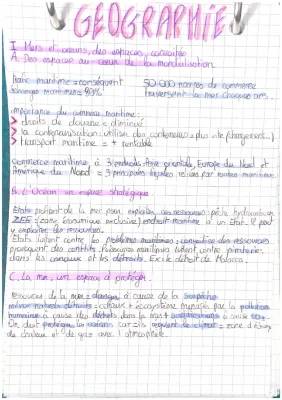 GEOGRAPHIE
I. Mers et océans, des espaces convoités
A. Des espaces au coeur de la mondialisation
Trafic maritime = conséquent
50 000 navires de commerce
Echanges maritimes = 90%
traversent la mer chaque ans.
Importance du commerce maritime:
> droits de douane = diminué
> la conteneurisation: utilisation des conteneurs = plus vite (chargement...)
> transport maritime = + rentable
Commerce maritime à 3 Asie orientale, Europe du Nord et
Amérique du Nord = 3 principales reliées par routes maritimes.
B. L'Océan un espace stratégique
Etats profitent de la mer pour exploiter ses ressources: pêche, hydrocarbures
ZEE (zone économique exclusive) = endroit maritime à un Etat. Il peut
y exploiter des ressources.
Etats luttent contre les problèmes maritimes, des ressources
provoquent des conflits. maritimes luttent contre piraterie
dans les canaux et les détroits. Ex: le détroit de Malacca.
C. La mer, un espace à protéger
Ressources de la mer = à cause de la
= + écosystème menacés par la pollution
humaine à cause des déchets dans la mer +
On doit protéger les océans car = régulent le climat = zone d'échange
de chaleur et de gaz avec l'atmosphère.